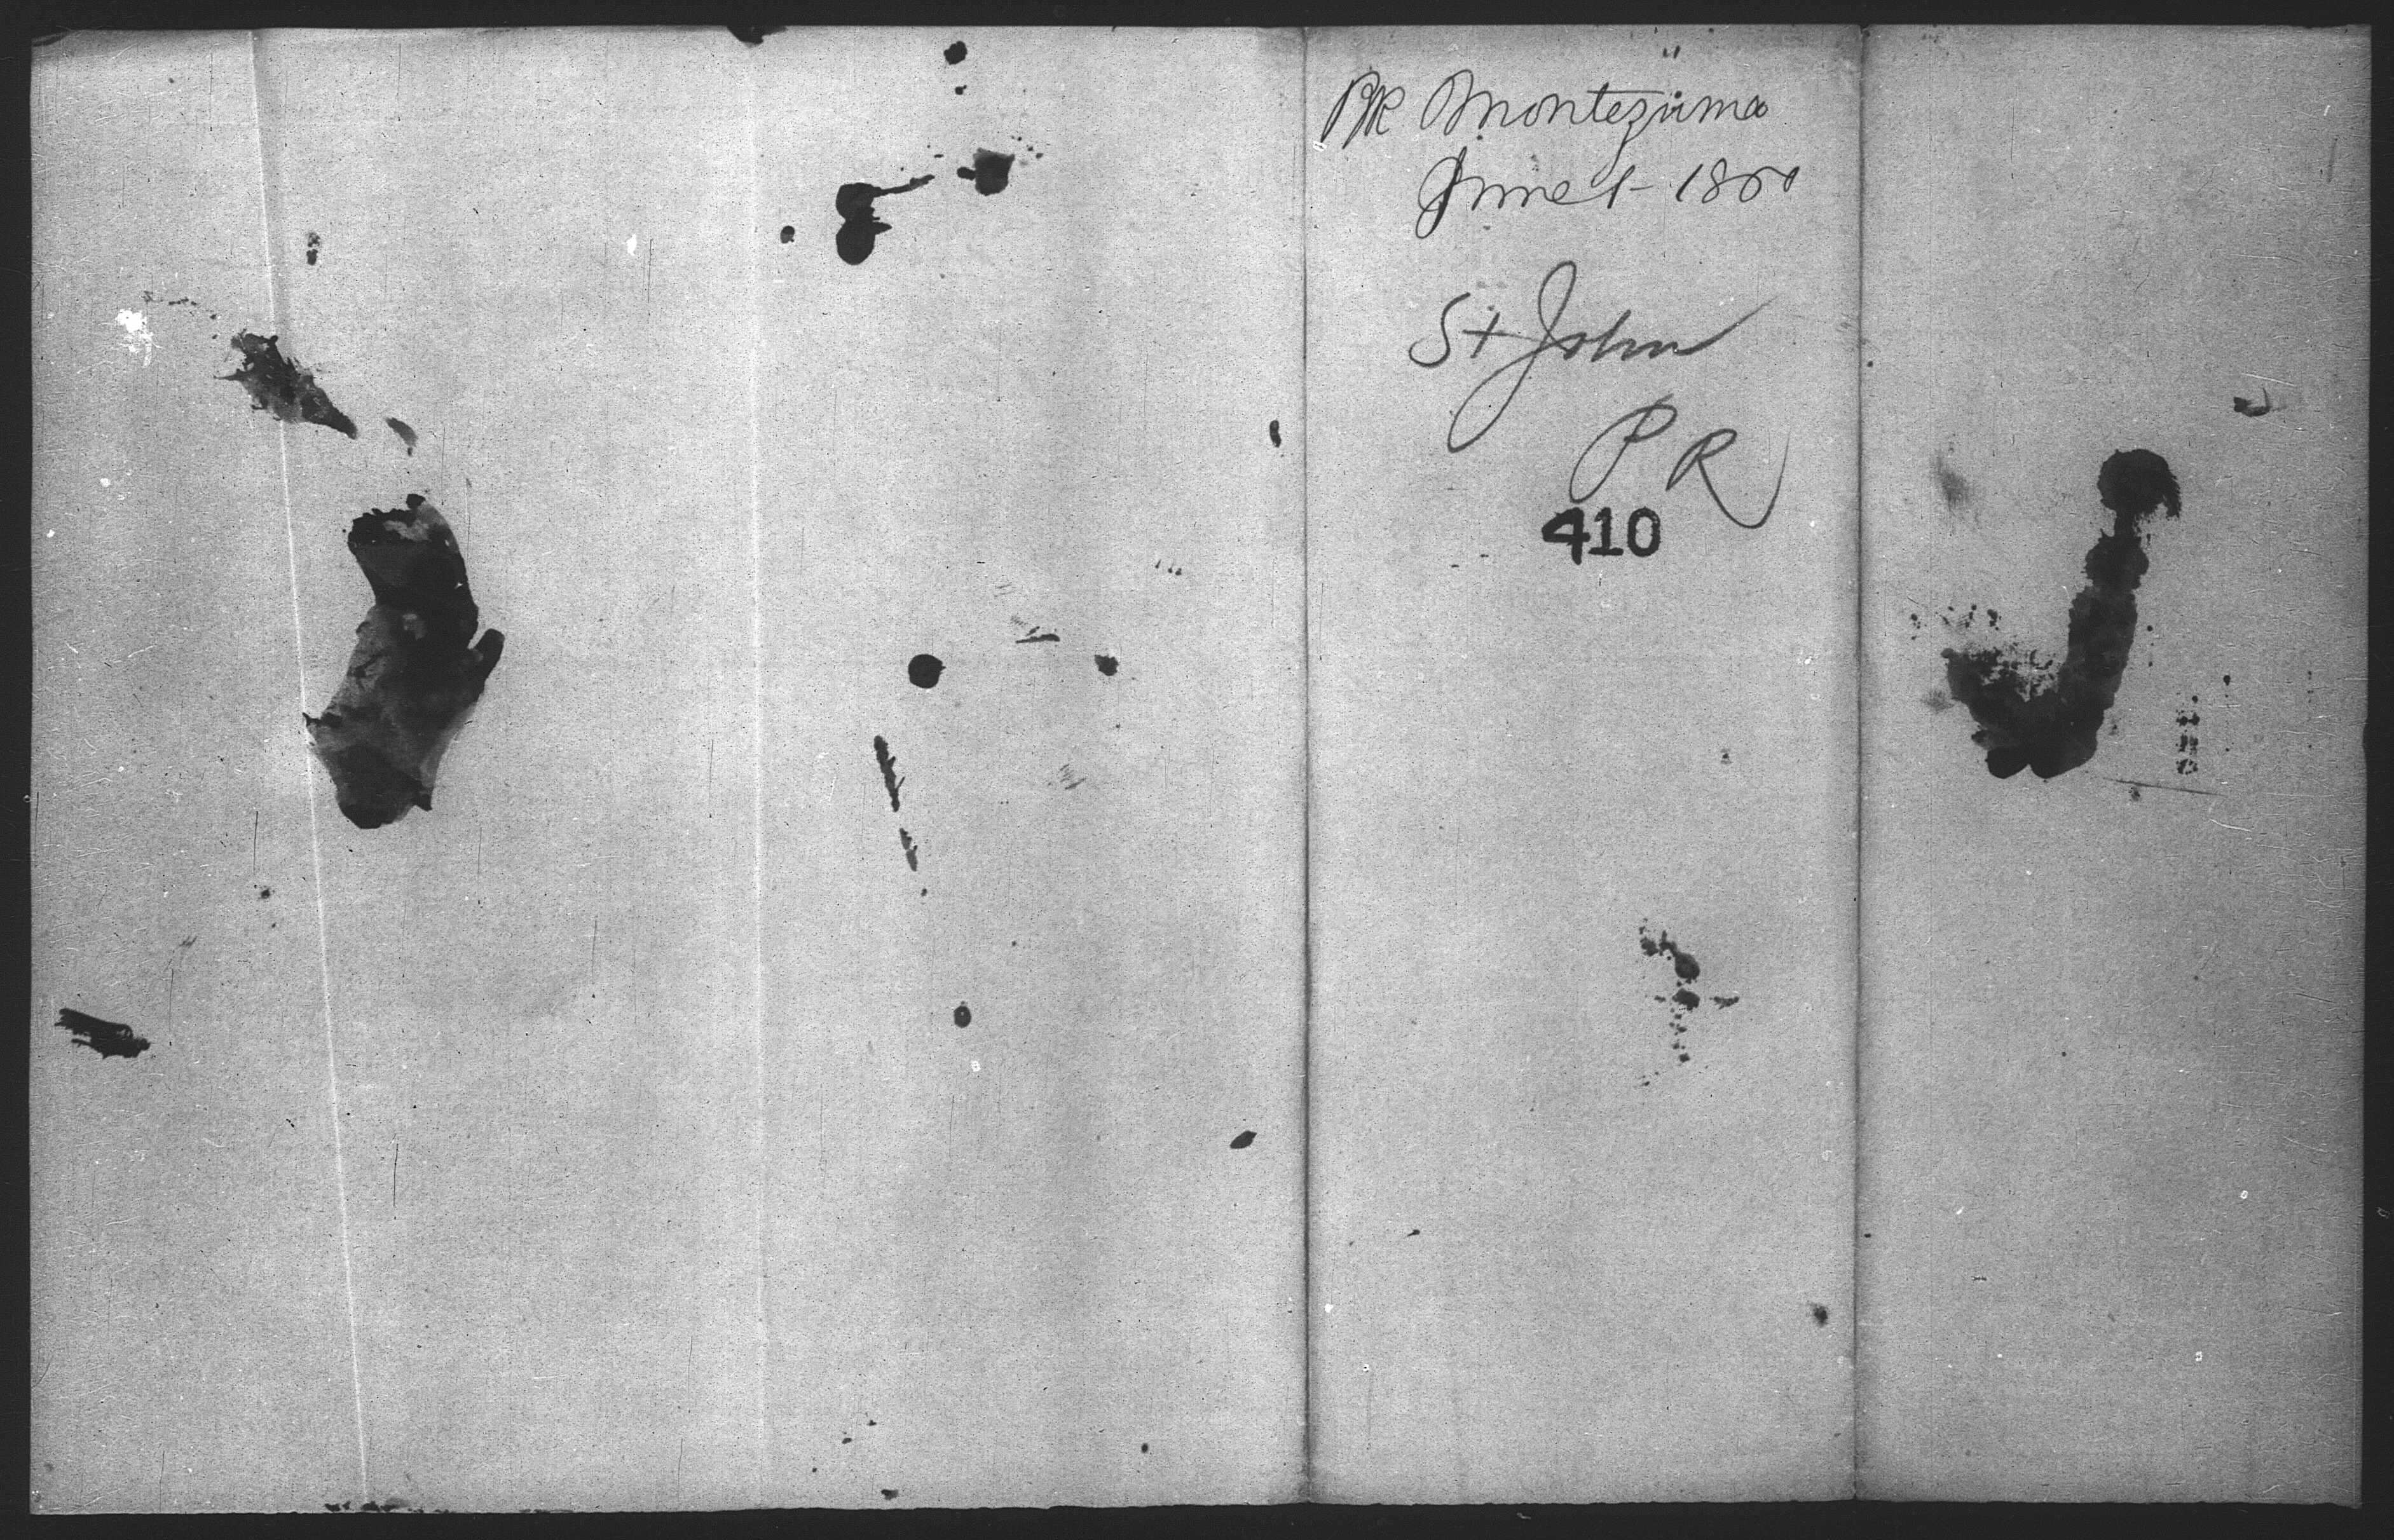 Bk Montezuma
June 1 - 1860
St John
P R
410